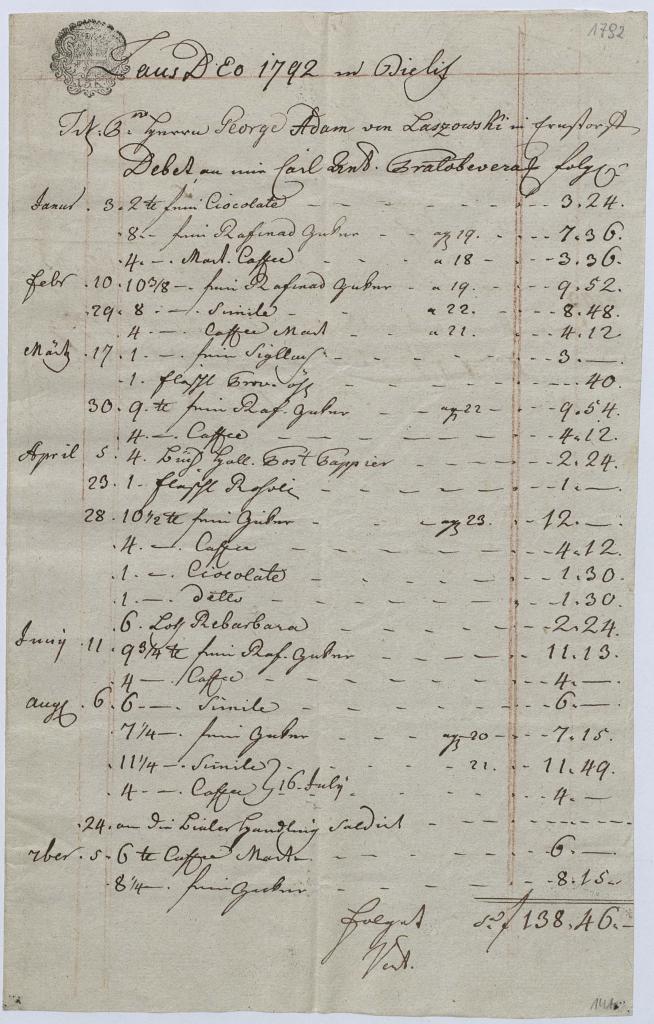 1792
Laus DEo 1792 in Bielitz
Tit. Herrn George Adam von Laszowski in Ernstorff
Debet, an mir Carl Ant. Bratobevera folgt
Januar . 3. 2 te fein Ciocolate - - - 3.24.
8. - fein Rafinad Zuker - 19. - - 7.36.
4. - Mart. Caffee - a 18 - - 3.36.
febr . 10. 10 3/8 - fein Rafinad Zuker - a 19. - - 9.52.
29. 8. - Simile - a 22. - - 8.48.
4. - Caffee Mart - a 21. - - 4.12
Märtz . 17. 1. - fein - - 3. -
1. flaschl Prov. öhl - - 40.
30. 9. te fein Raf. Zuker - 22 - - 9.54.
4. - Caffee - - - 4.12.
April . 5. 4. Buch Holl. Post Pappier - - 2.24.
23. 1 - flaschl Rosoli - - - 1. -
28. 10 1/2 te fein Zuker - 23. - 12. -
4. - Caffee - - - 4.12.
1. - Ciocolate - - - 1.30.
1. - detto - - - 1.30.
6. Loth Rebarbara - - - 2.24.
Juny . 11. 9 3/4 te fein Raf. Zuker - - - 11.13.
4 - Caffee - - - 4. -
aug . 6. 6 - Simile - - - 6. -
7 1/4 - fein Zuker - 20 - - 7.15.
11 1/4 - Simile 21. - - 11.49.
4. - Caffee } 16 July - - 4. -
24. an die Bialer Handlung Saldirt - - -
7ber . 5. 6 te Caffee Mart - - - 6. -
8 1/4 - fein Zuker - - - 8.15.
folget f 138.46. -
Vert.